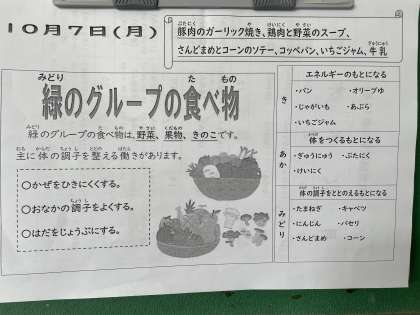 10月7日(月)
豚肉のガーリック焼き、鶏肉と野菜のスープ、
さんどまめとコーンのソテー、コッペパン、いちごジャム、牛乳
緑のグループの食べ物
緑のグループの食べ物は、野菜、果物、きのこです。
主に体の調子を整える働きがあります。
○かぜをひきにくくする。
○おなかの調子をよくする。
○はだをじょうぶにする。
エネルギーのもとになる
き
・パン ・オリーブゆ
・じゃがいも ・あぶら
・いちごジャム
体をつくるもとになる
あか
・ぎゅうにゅう ・ぶたにく
・けいにく
体の調子をととのえるもとになる
みどり
・たまねぎ ・キャベツ
・にんじん ・パセリ
・さんどまめ ・コーン